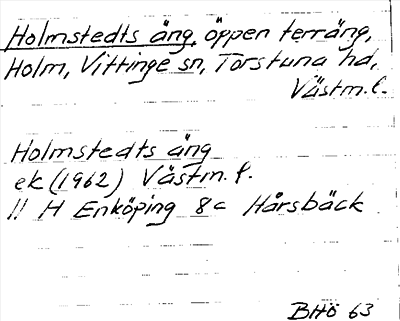 Holmstedts äng, öppen terräng,
Holm, Vittinge sn, Torstuna hd,
Västm. l.
Holmstedts äng
ek (1962) Västm. f.
11 H Enköping 8c Hårsbäck
BHÖ 63